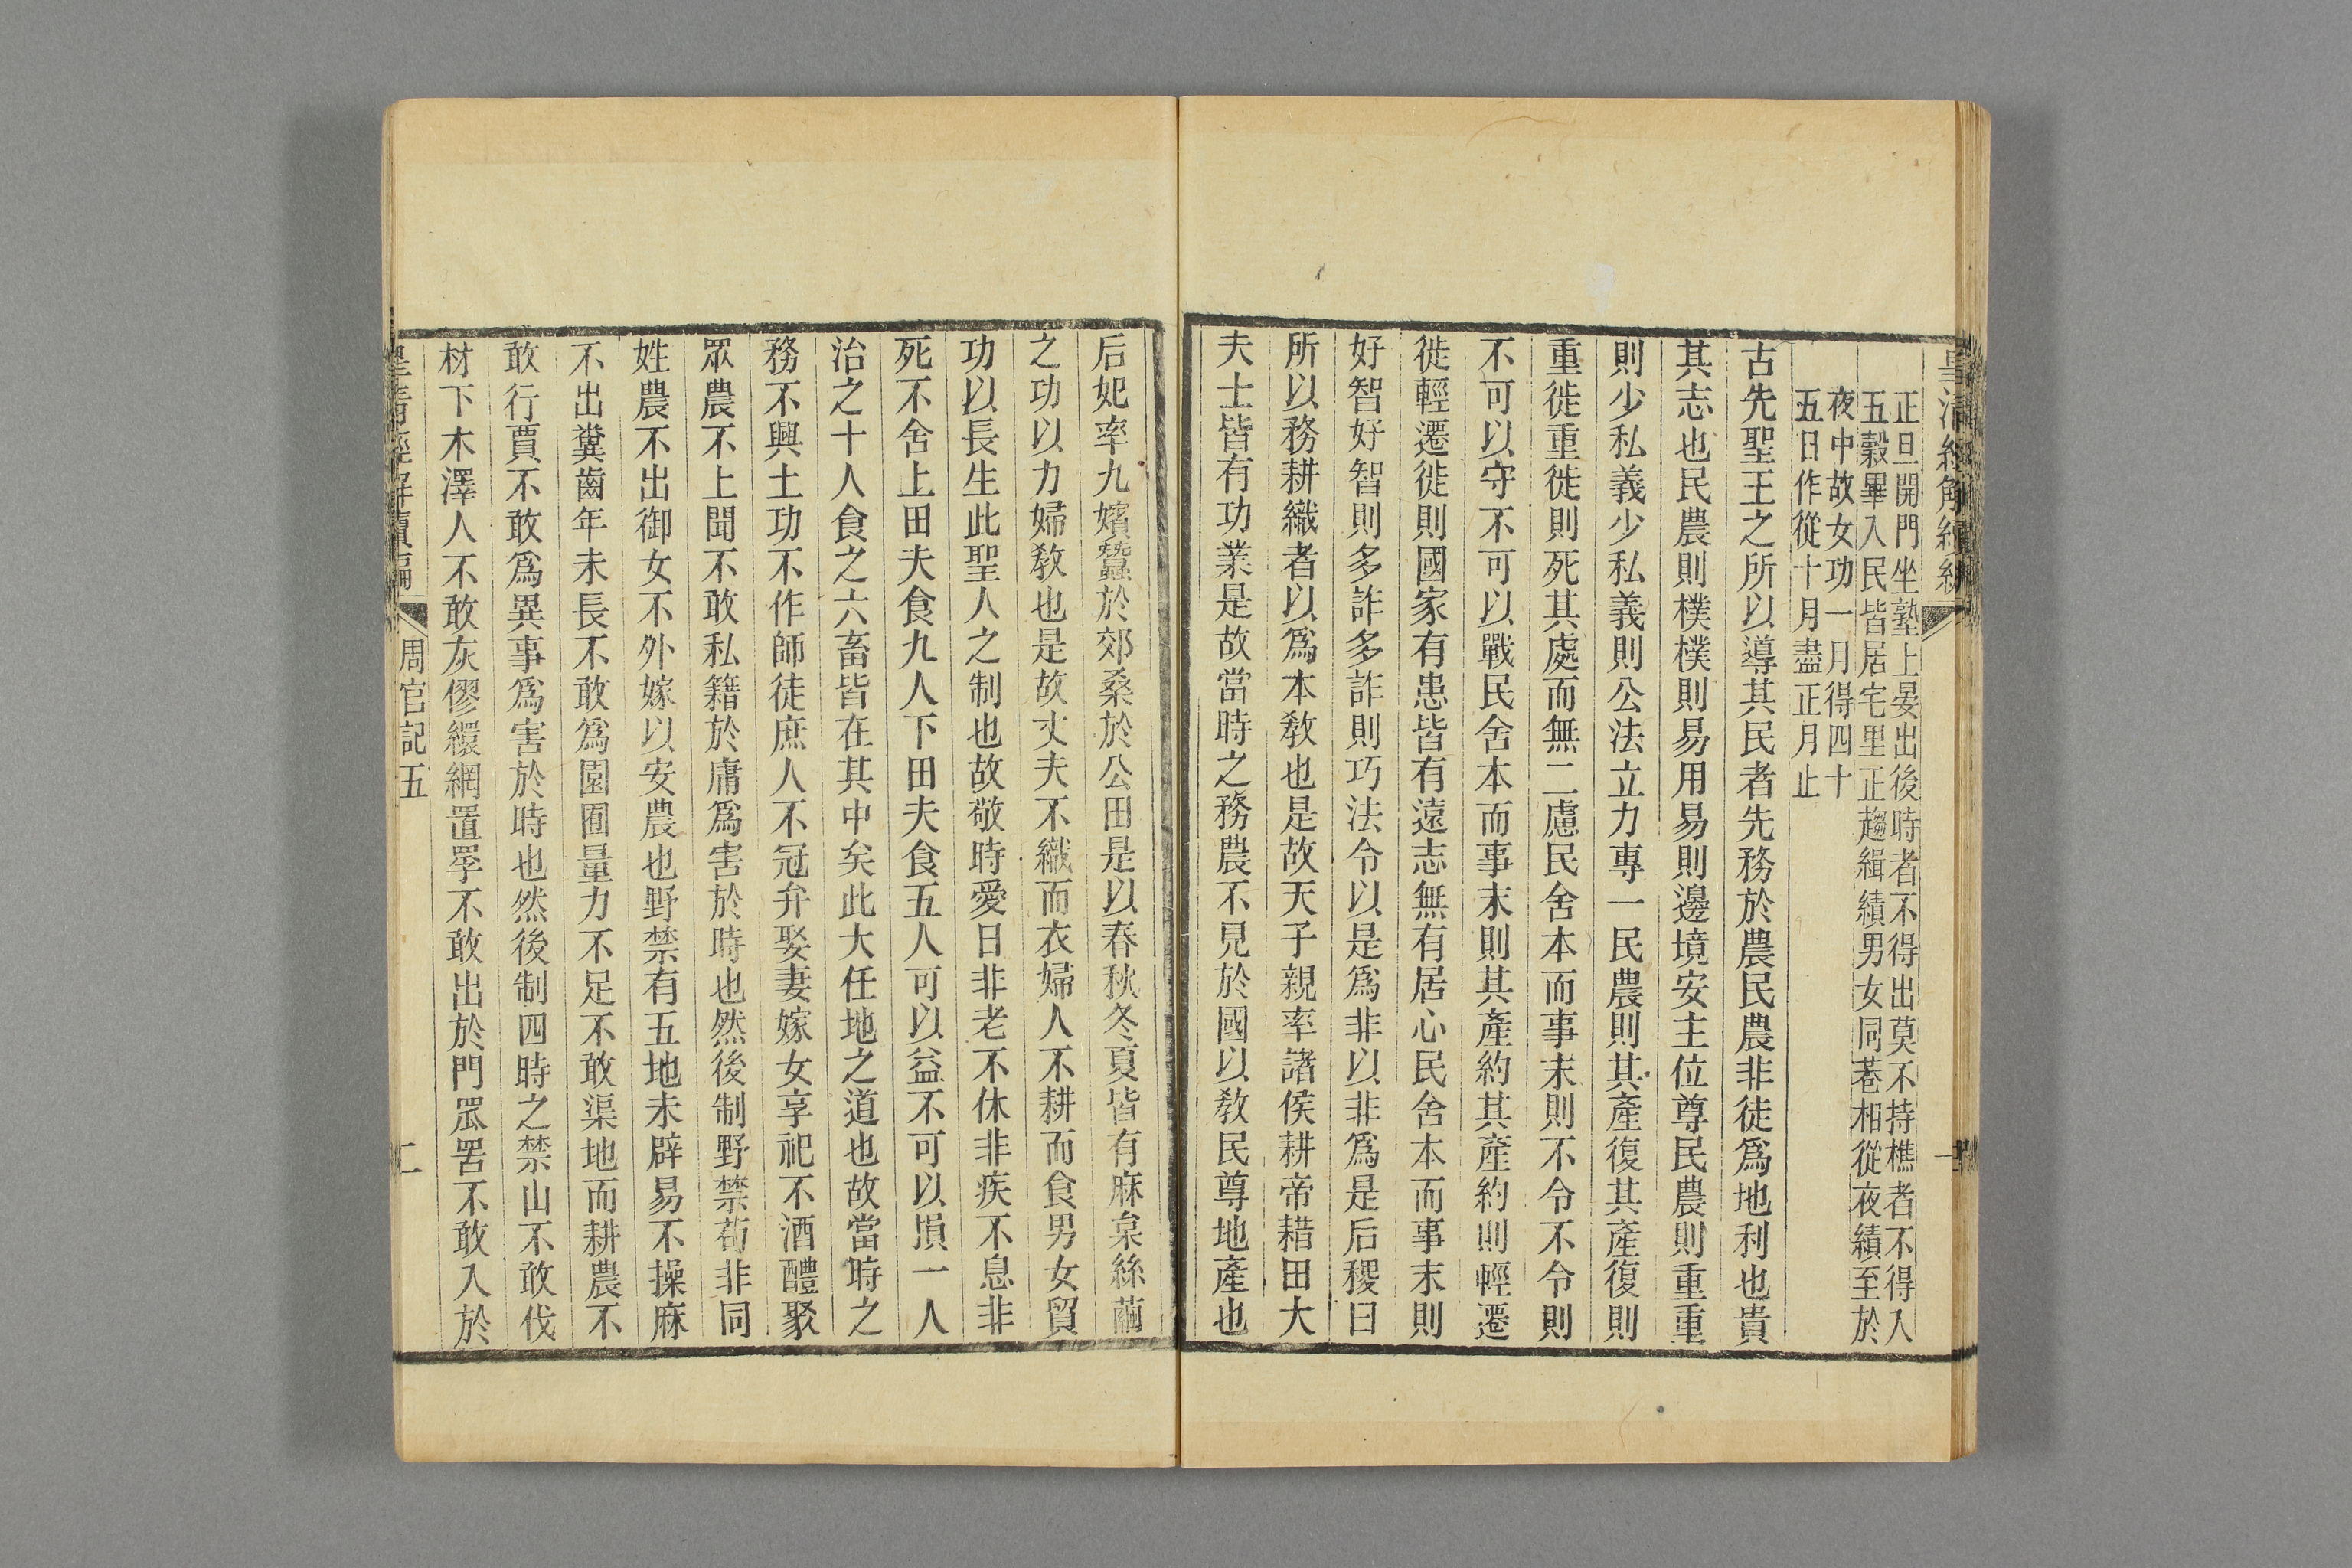 皇清經解續編
正旦開門坐塾上晏出後時者不得出莫不持樵者不得入
五穀畢入民皆居宅里正趨緝績男女同巷相從夜績至於
夜中故女功一月得四十
五日作從十月盡正月止
古先聖王之所以導其民者先務於農民農非徒爲地利也貴
其志也民農則樸樸則易用易用則邊境安主位尊民農則重重
則少私義少私義則公法立力專一民農則其產復其產復則
重徙重徙則死其處而無二慮民舍本而事末則不令不令則
不可以守不可以戰民舍本而事末則其產約其產約則輕遷
徙輕遷徙則國家有患皆有遠志無有居心民舍本而事末則
好智好智則多詐多詐則巧法令以是爲非以非爲是后稷曰
所以務耕織者以爲本敎也是故天子親率諸侯耕帝耤田大
夫士皆有功業是故當時之務農不見於國以敎民尊地產也
后妃率九嬪蠶於郊桑於公田是以春秋冬夏皆有麻枲絲繭
之功以力婦敎也是故丈夫不織而衣婦人不耕而食男女貿
功以長生此聖人之制也故敬時愛日非老不休非疾不息非
死不舍上田夫食九人下田夫食五人可以益不可以損一人
治之十人食之六畜皆在其中矣此大任地之道也故當時之
務不興土功不作師徒庶人不冠弁娶妻嫁女享祀不酒醴聚
眾農不上聞不敢私籍於庸爲害於時也然後制野禁苟非同
姓農不出御女不外嫁以安農也野禁有五地未辟易不操麻
不出糞齒年未長不敢爲園囿量力不足不敢渠地而耕農不
敢行賈不敢爲異事爲害於時也然後制四時之禁山不敢伐
材下木澤人不敢灰僇繯網罝罦不敢出於門罛罟不敢入於
皇清經解續編
周官記五
二